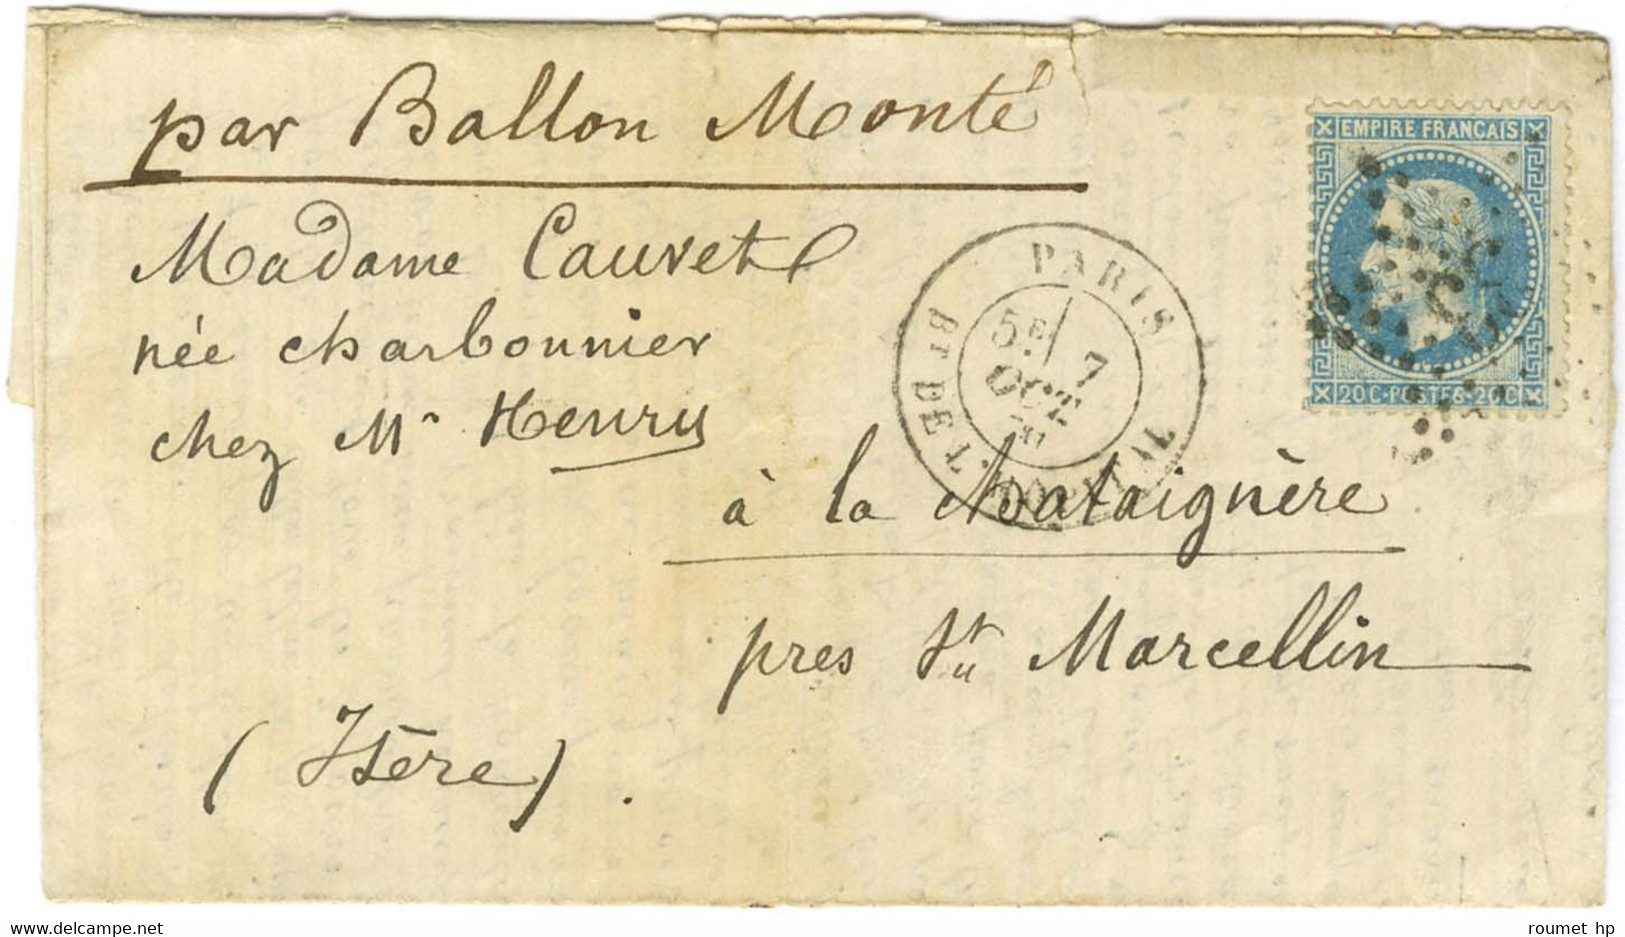 par Ballon Monté
Madame Cauvet
née Charbonnier
chez Mr Henry
à la Chataignère
pres St Marcellin
(Isère).
PARIS
5E 7
OCT
70
BT DE L'HOPITAL
EMPIRE FRANÇAIS
20 C-POSTES-20 C
delcampe.net
roumet hp